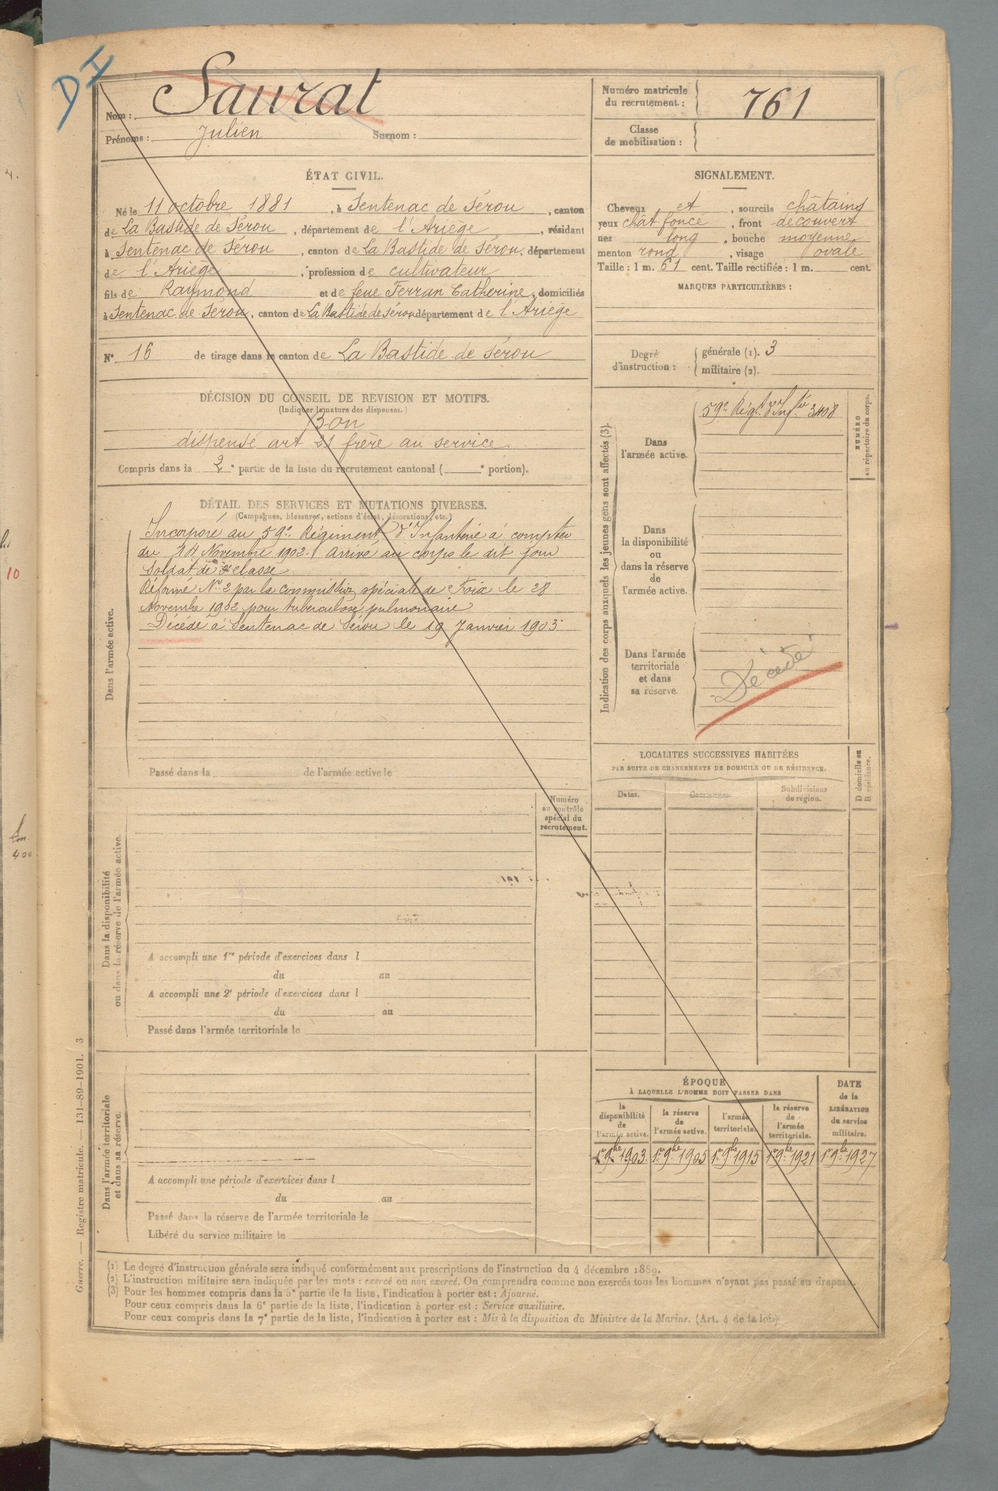 DI
Nom : Saurat
Prénoms : Julien Surnom :
Numéro matricule du recrutement : 761
Classe de mobilisation :
ÉTAT CIVIL.
Né le 11 octobre 1881, à Sentenac de Sérou, canton
de La Bastide de Sérou, département de l'Ariège, résidant
à Sentenac de Sérou, canton de La Bastide de Sérou, département
de l'Ariège, profession de cultivateur
fils de Raymond et de feue Ferran Catherine, domiciliés
à Sentenac de Sérou, canton de La Bastide de Sérou département de l'Ariège
N° 16 de tirage dans le canton de La Bastide de Sérou
SIGNALEMENT.
Cheveux et, sourcils châtains
yeux chât foncé, front découvert
nez long, bouche moyenne
menton rond, visage ovale
Taille : 1 m. 61 cent. Taille rectifiée : 1 m. cent.
MARQUES PARTICULIÈRES :
Degré d'instruction : générale (1). 3
militaire (2).
DÉCISION DU CONSEIL DE REVISION ET MOTIFS.
(Indiquer la nature des dispenses.)
Bon
dispensé art 21 frère au service
Compris dans la 2e partie de la liste du recrutement cantonal ( e portion).
DÉTAIL DES SERVICES ET MUTATIONS DIVERSES.
(Campagnes, blessures, actions d'éclat, décorations, etc.)
Dans l'armée active.
Incorporé au 59e Régiment d'Infanterie à compter
du Novembre 1902. Arrivé au corps le dit jour
Soldat de 2e classe
Réformé N° 2 par la commission spéciale de Foix le 28
Novembre 1902 pour tuberculose pulmonaire
Décédé à Sentenac de Sérou le 19 Janvier 1903
Passé dans la de l'armée active le
Indication des corps auxquels les jeunes gens sont affectés (3).
NUMÉRO au répertoire du corps.
Dans l'armée active.
59e Régt d'Infrie 3408
Dans la disponibilité ou dans la réserve de l'armée active.
Dans l'armée territoriale et dans sa réserve.
Décédé
LOCALITÉS SUCCESSIVES HABITÉES
PAR SUITE DE CHANGEMENTS DE DOMICILE OU DE RÉSIDENCE.
Dates. Communes. Subdivisions de région. D domicile ou R résidence.
Dans la disponibilité ou dans la réserve de l'armée active.
Numéro au contrôle spécial du recrutement.
A accompli une 1re période d'exercices dans l
du au
A accompli une 2e période d'exercices dans l
du au
Passé dans l'armée territoriale le
Dans l'armée territoriale et dans sa réserve.
A accompli une période d'exercices dans l
du au
Passé dans la réserve de l'armée territoriale le
Libéré du service militaire le
ÉPOQUE
À LAQUELLE L'HOMME DOIT PASSER DANS
la disponibilité de l'armée active.
la réserve de l'armée active.
l'armée territoriale.
la réserve de l'armée territoriale.
DATE de la LIBÉRATION du service militaire.
1er 9bre 1903. 1er 9bre 1905 1er 9bre 1915 1er 9bre 1921 1er 9bre 1927
(1) Le degré d'instruction générale sera indiqué conformément aux prescriptions de l'instruction du 4 décembre 1889.
(2) L'instruction militaire sera indiquée par les mots : exercé ou non exercé. On comprendra comme non exercés tous les hommes n'ayant pas passé au drapeau.
(3) Pour les hommes compris dans la 5e partie de la liste, l'indication à porter est : Ajourné.
Pour ceux compris dans la 6e partie de la liste, l'indication à porter est : Service auxiliaire.
Pour ceux compris dans la 7e partie de la liste, l'indication à porter est : Mis à la disposition du Ministre de la Marine. (Art. 4 de la loi.)
Guerre. — Registre matricule. — 131-89-1901. 3
10